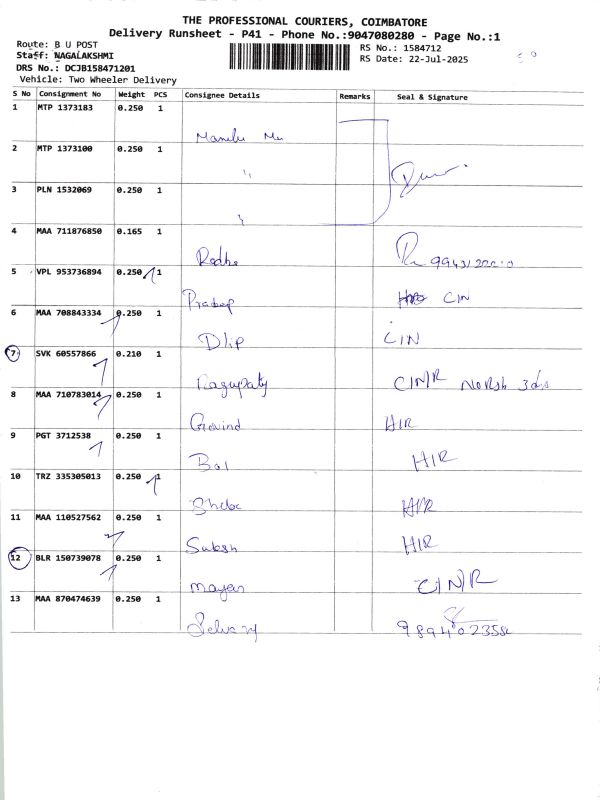 THE PROFESSIONAL COURIERS, COIMBATORE
Delivery Runsheet - P41 - Phone No.:9047080280 - Page No.:1
Route: B U POST
Staff: NAGALAKSHMI
DRS No.: DCJB158471201
Vehicle: Two Wheeler Delivery
RS No.: 1584712
RS Date: 22-Jul-2025
S No Consignment No Weight PCS Consignee Details Remarks Seal & Signature
1 MTP 1373183 0.250 1
2 MTP 1373100 0.250 1
3 PLN 1532069 0.250 1
4 MAA 711876850 0.165 1
Radha
5 VPL 953736894 0.250 1
Pradeep CIN
6 MAA 708843334 0.250 1
Dlip CIN
7 SVK 60557866 0.210 1
Ragupaty CIN/R
8 MAA 710783014 0.250 1
Govind HIR
9 PGT 3712538 0.250 1
Bal HIR
10 TRZ 335305013 0.250 1
HIR
11 MAA 110527562 0.250 1
Suksh HIR
12 BLR 150739078 0.250 1
mayan CIN/R
13 MAA 870474639 0.250 1